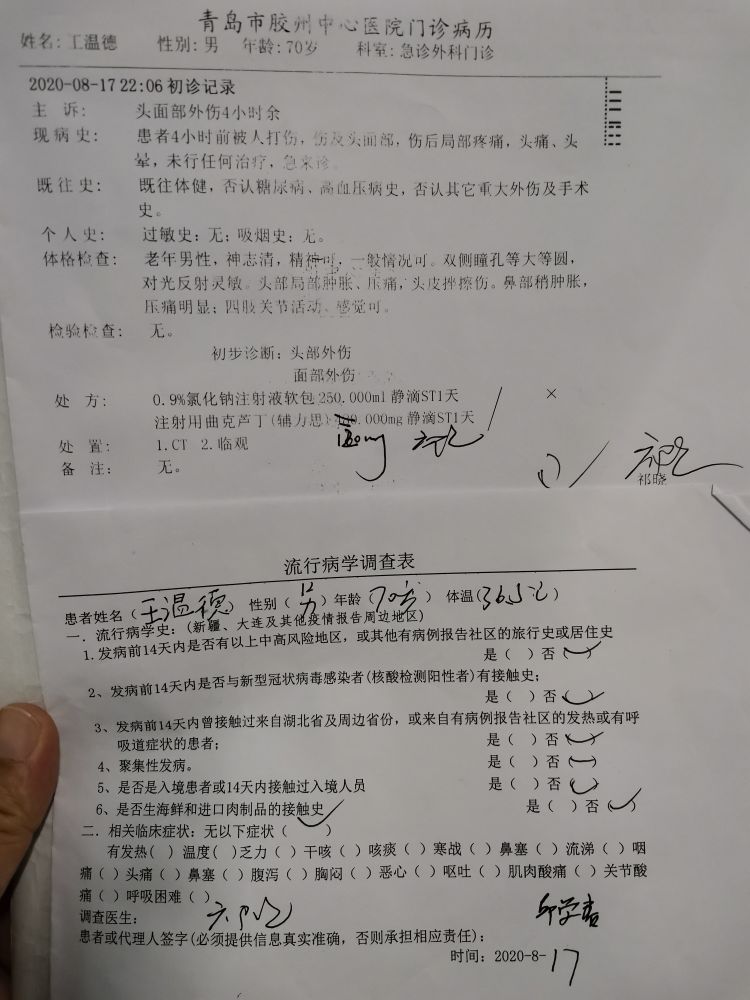 青岛市胶州中心医院门诊病历
姓名: 王温德 性别: 男 年龄: 70岁 科室: 急诊外科门诊
2020-08-17 22:06 初诊记录
主 诉: 头面部外伤4小时余
现病史: 患者4小时前被人打伤，伤及头面部，伤后局部疼痛，头痛、头
晕，未行任何治疗，急来诊。
既往史: 既往体健，否认糖尿病、高血压病史，否认其它重大外伤及手术
史。
个人史: 过敏史: 无; 吸烟史: 无。
体格检查: 老年男性，神志清，精神可，一般情况可。双侧瞳孔等大等圆，
对光反射灵敏。头部局部肿胀、压痛，头皮挫擦伤。鼻部稍肿胀，
压痛明显; 四肢关节活动、感觉可。
检验检查: 无。
初步诊断: 头部外伤
面部外伤
处 方: 0.9%氯化钠注射液软包 250.000ml 静滴ST1天 ×
注射用曲克芦丁(辅力思) .000mg 静滴ST1天
处 置: 1.CT 2.临观
备 注: 无。
祁晓
流行病学调查表
患者姓名（王温德）性别（男）年龄（70岁）体温（36.5℃）
一．流行病学史:（新疆、大连及其他疫情报告周边地区）
1.发病前14天内是否有以上中高风险地区，或其他有病例报告社区的旅行史或居住史
是（ ）否（✓）
2、发病前14天内是否与新型冠状病毒感染者(核酸检测阳性者)有接触史;
是（ ）否（✓）
3、发病前14天内曾接触过来自湖北省及周边省份，或来自有病例报告社区的发热或有呼
吸道症状的患者; 是（ ）否（✓）
4、聚集性发病。 是（ ）否（✓）
5、是否是入境患者或14天内接触过入境人员 是（ ）否（✓）
6、是否生海鲜和进口肉制品的接触史 是（ ）否（✓）
二．相关临床症状: 无以下症状（✓）
有发热( ) 温度( )乏力( ) 干咳( ) 咳痰( ) 寒战( ) 鼻塞( ) 流涕( ) 咽
痛( ) 头痛( ) 鼻塞( ) 腹泻( ) 胸闷( ) 恶心( ) 呕吐( ) 肌肉酸痛( ) 关节酸
痛( ) 呼吸困难( )
调查医生:
患者或代理人签字(必须提供信息真实准确，否则承担相应责任):
时间: 2020-8-17